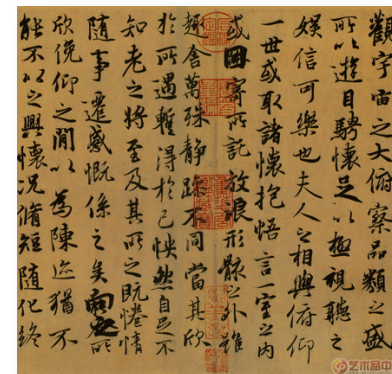 觀宇宙之大俯察品類之盛
所以遊目騁懷足以極視聽之
娛信可樂也夫人之相與俯仰
一世或取諸懷抱悟言一室之內
或因寄所託放浪形骸之外雖
趣舍萬殊靜躁不同當其欣
於所遇暫得於己怏然自足不
知老之將至及其所之既惓情
隨事遷感慨係之矣向之所
欣俛仰之間以為陳迹猶不
能不以之興懷況脩短隨化終
艺术品中